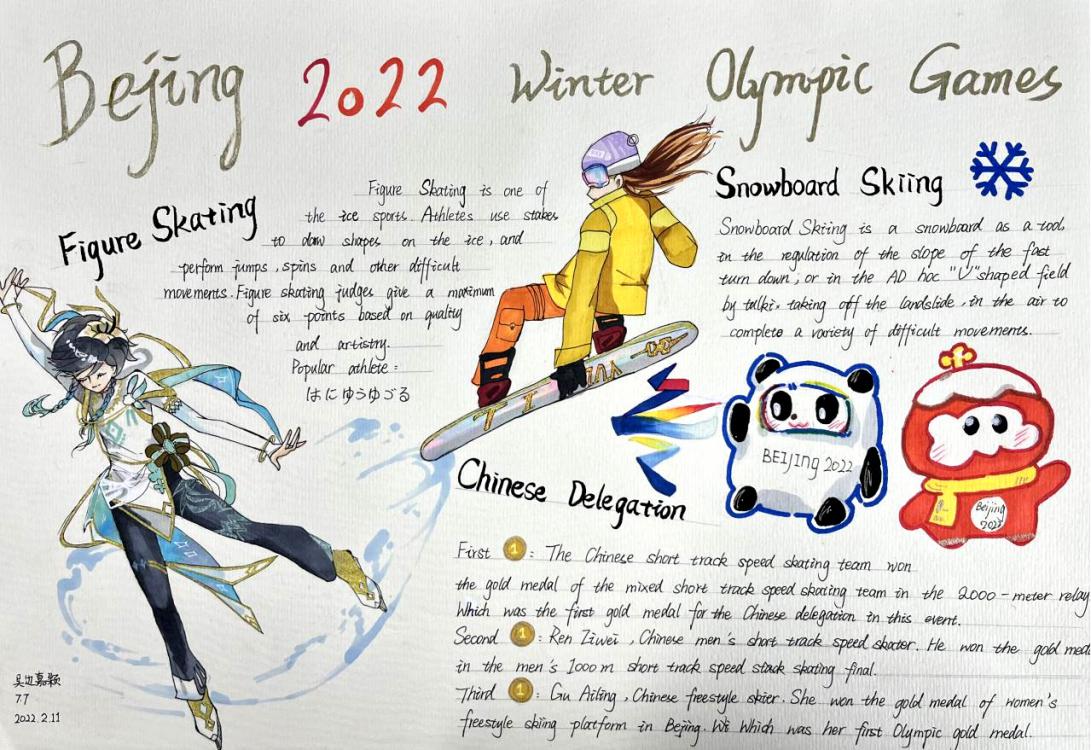 Bejing 2022 Winter Olympic Games
Figure Skating
Figure Skating is one of
the ice sports. Athletes use stakes
to daw shapes on the ice, and
perform jumps, spins and other difficult
movements. Figure skating judges give a maximum
of six points based on quality
and artistry.
Popular athlete:
はにゆうゆづる
Snowboard Skiing
Snowboard Skiing is a snowboard as a tool,
in the regulation of the slope of the fast
turn down, or in the AD hoc "U" shaped field
by talki, taking off the landslide, in the air to
complete a variety of difficult movements.
BEIJING 2022
Beijing
2022
Chinese Delegation
First 1: The Chinese short track speed skating team won
the gold medal of the mixed short track speed skating team in the 2000-meter relay
Which was the first gold medal for the Chinese delegation in this event.
Second 1: Ren Ziwei, Chinese men's short track speed skater. He won the gold med
in the men's 1000m short track speed stack skating final.
Third 1: Gu Ailing, Chinese freestyle skier. She won the gold medal of women's
freestyle skiing platform in Bejing. Wi Which was her first Olympic gold medal.
77
2022.2.11